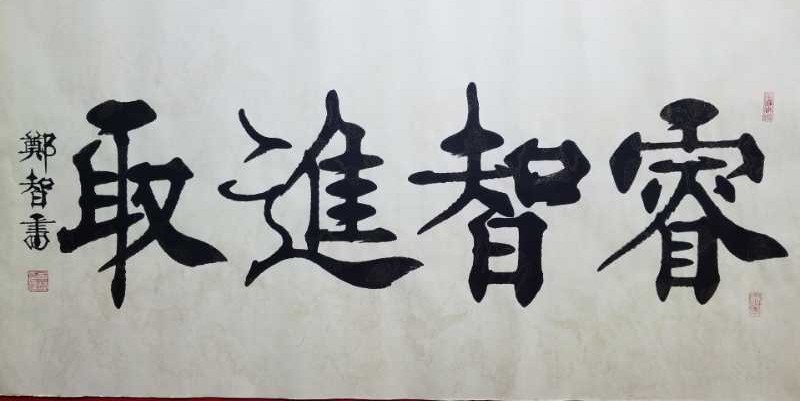 睿智進取
鄭智書